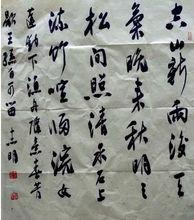 空山新雨後天
氣晚来秋明月
松間照清泉石上
流竹喧歸浣女
蓮動下漁舟隨意春芳
歇王孫自可留